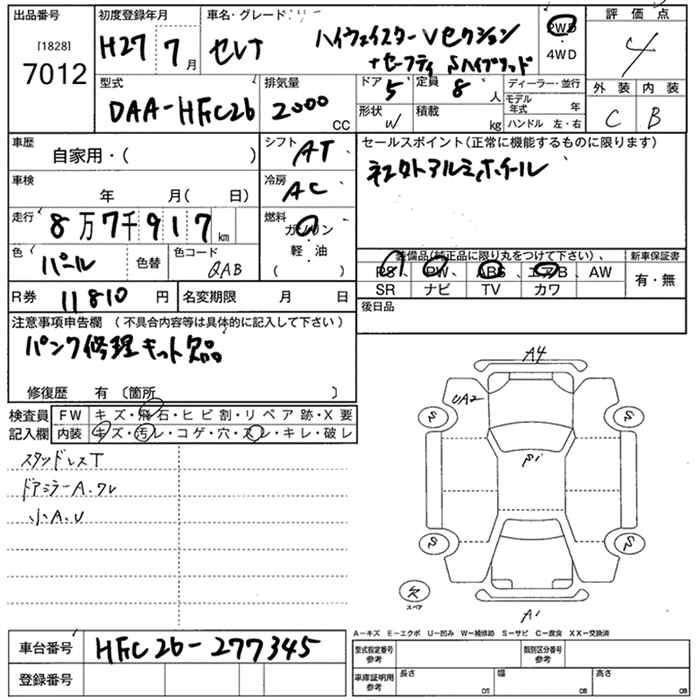 出品番号 初度登録年月 車名・グレード 評価点
[1828]
7012
H27 7月 セレナ ハイウェイスター Vセクション
+セーフティ Sハイブリッド
2WD
4WD
4
型式 排気量 ドア 定員 ディーラー・並行 外装 内装
DAA-HFC26 2000 CC 5 8人 モデル年式 年
形状 W 積載 kg ハンドル 左・右 C B
車歴 シフト セールスポイント(正常に機能するものに限ります)
自家用・( ) AT
社外アルミホイール
車検 冷房
年 月( 日) AC
走行 燃料
8万7千917km ガソリン
軽・油
( )
色 色替 色コード
パール QAB
装備品(純正品に限り丸をつけて下さい)、 新車保証書
PS、PW、ABS、エアB、AW 有・無
SR ナビ TV カワ
R券 11810円 名変期限 月 日
後日品
注意事項申告欄 (不具合内容等は具体的に記入して下さい)
パンク修理キット欠品
修復歴 有 〔箇所 〕
検査員 FW キズ・飛石・ヒビ割・リペア跡・X要
記入欄 内装 キズ・汚レ・コゲ・穴・スレ・キレ・破レ
スタッドレスT
ドアミラーA.ワレ
小A.U
A4
UA2
S S
P1
S S
欠
スペア
A1
A-キズ E-エクボ U-凹み W-補修跡 S-サビ C-腐食 XX-交換済
車台番号 HFC26-277345
登録番号
型式指定番号 参考 類別区分番号 参考
車庫証明用 参考 長さ 幅 高さ
CM CM CM